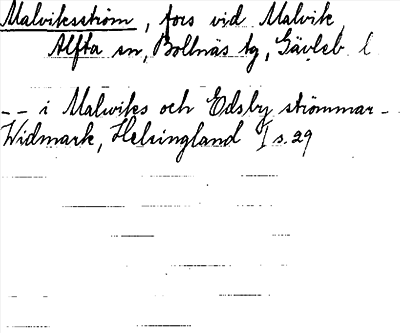 Malviksström, fors vid Malvik,
Alfta sn, Bollnäs tg, Gävleb. l.
-- i Malwiks och Edsby strömmar --
Widmark, Helsingland I s. 29